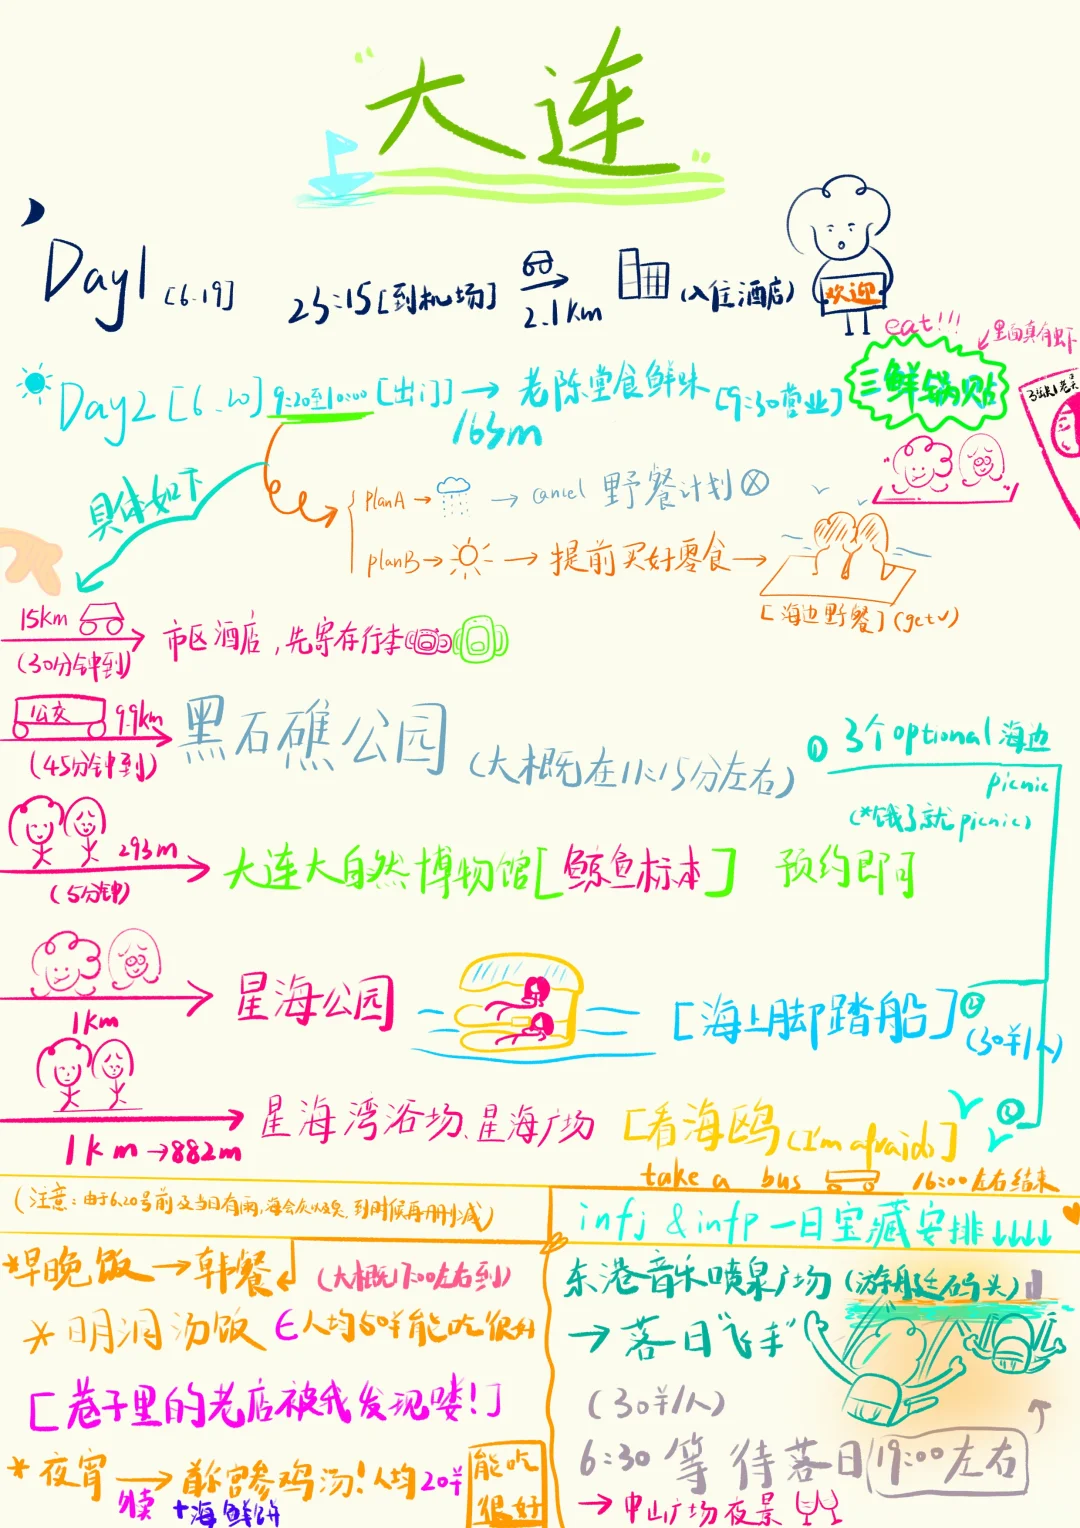 “大连”
Day1 [6.19] 23:15[到机场] 2.1km (入住酒店)
欢迎
eat!!! 里面真有虾
Day2 [6.20] 9:20至10:00 [出门] → 老陈堂食鲜味 [9:30营业] 三鲜锅贴
163m
具体如下
planA → → cancel 野餐计划
planB → → 提前买好零食 →
[海边野餐](get√)
15km
(30分钟到)
市区酒店,先寄存行李
公交 9.9km
(45分钟到)
黑石礁公园 (大概在11:15分左右)
① 3个optional 海边
picnic
(*饿了就picnic)
293m
(5分钟)
大连大自然博物馆[鲸鱼标本] 预约即可
1km
星海公园 [海上脚踏船] ②
(30¥/人)
1km→882m
星海湾浴场、星海广场 [看海鸥(I'm afraid)]
take a bus 16:00左右结束
(注意:由于6.20号前及当日有雨,海会灰,到时候再删减)
infj & infp 一日宝藏安排↓↓↓↓
*早晚饭→韩餐 (大概17:00左右到)
*明洞汤饭 ∈人均50¥能吃很好
[巷子里的老店被我发现喽!]
*夜宵 → 人参鸡汤!人均20¥
+海鲜饼
能吃
很好
东港音乐喷泉广场 (游艇码头)
→落日“飞手”
(30¥/人)
6:30 等待落日 19:00左右
→中山广场夜景